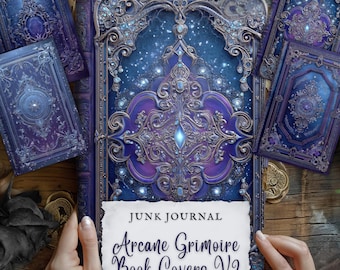 JUNK JOURNAL
Arcane Grimoire
Book Covers V2